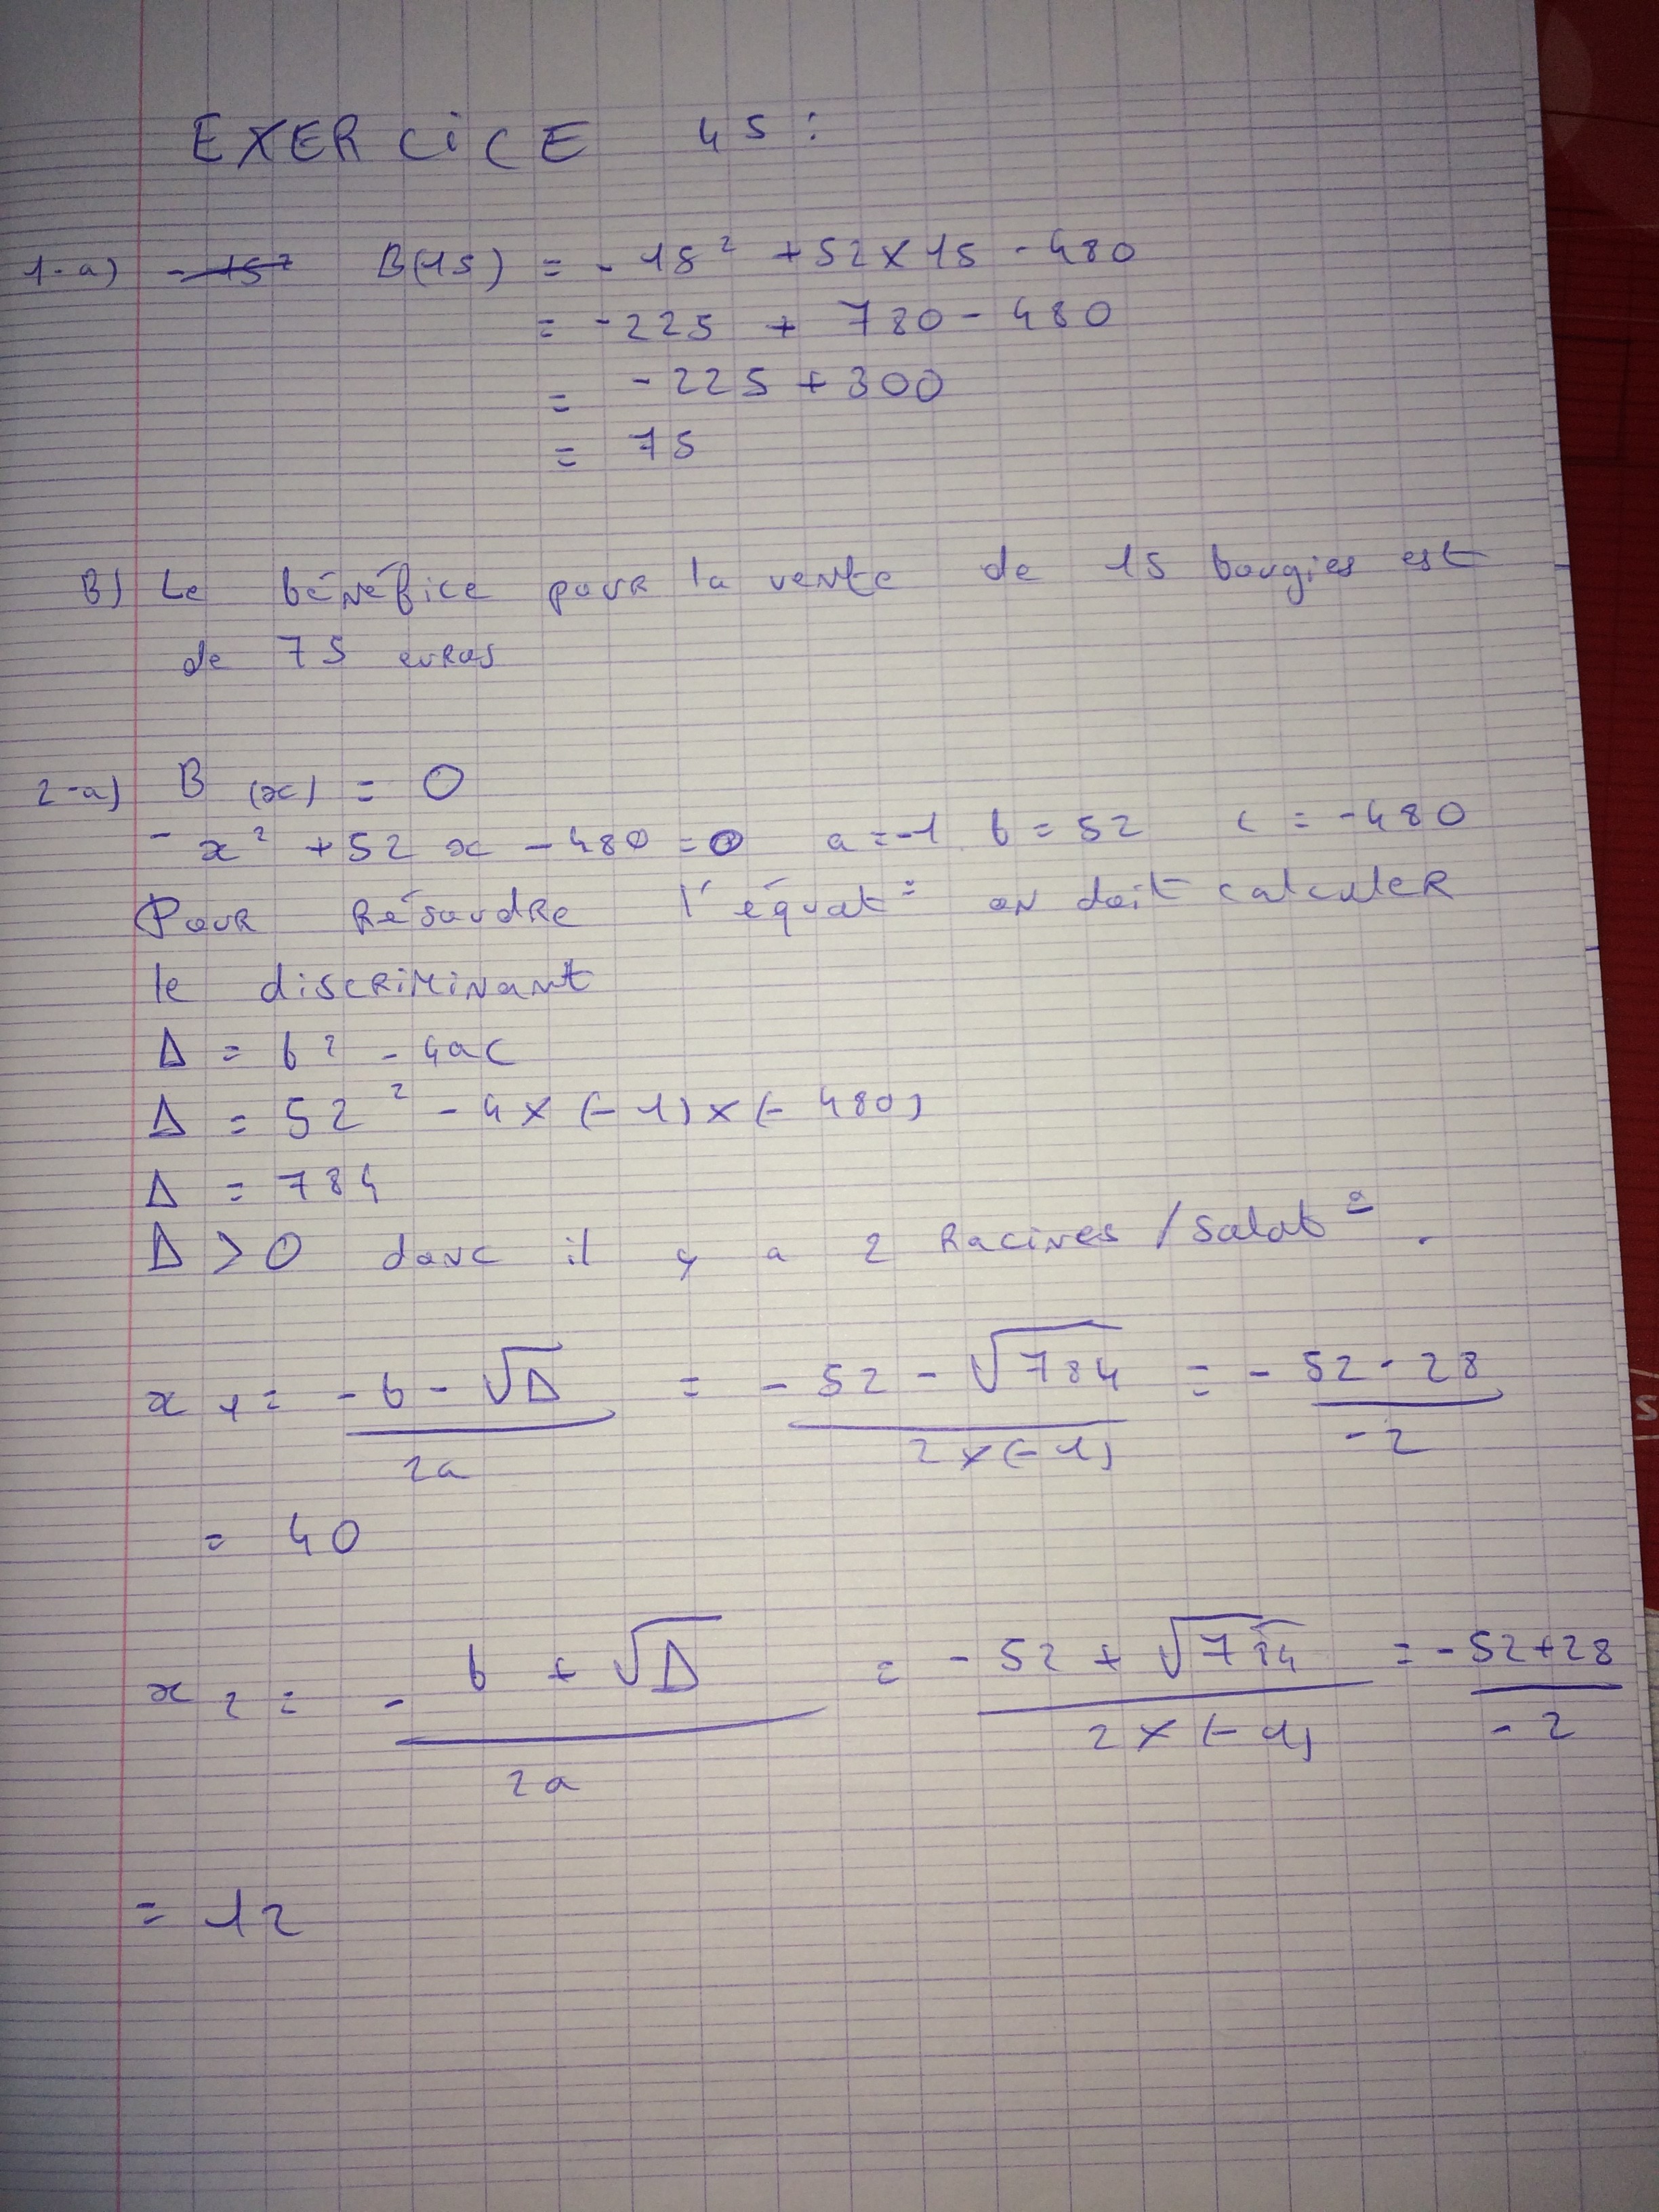 EXERCICE 45 :
1-a) -15² B(15) = -15² + 52 x 15 - 480
= -225 + 780 - 480
= -225 + 300
= 75
B) Le bénéfice pour la vente de 15 bougies est
de 75 euros
2-a) B(x) = 0
-x² + 52x - 480 = 0 a = -1 b = 52 c = -480
Pour Résoudre l'équat° on doit calculer
le discriminant
Δ = b² - 4ac
Δ = 52² - 4 x (-1) x (-480)
Δ = 784
Δ > 0 donc il y a 2 Racines / Solut° .
x1 = -b - √Δ / 2a = -52 - √784 / 2 x (-1) = -52 - 28 / -2
= 40
x2 = -b + √Δ / 2a = -52 + √784 / 2 x (-1) = -52 + 28 / -2
= 12